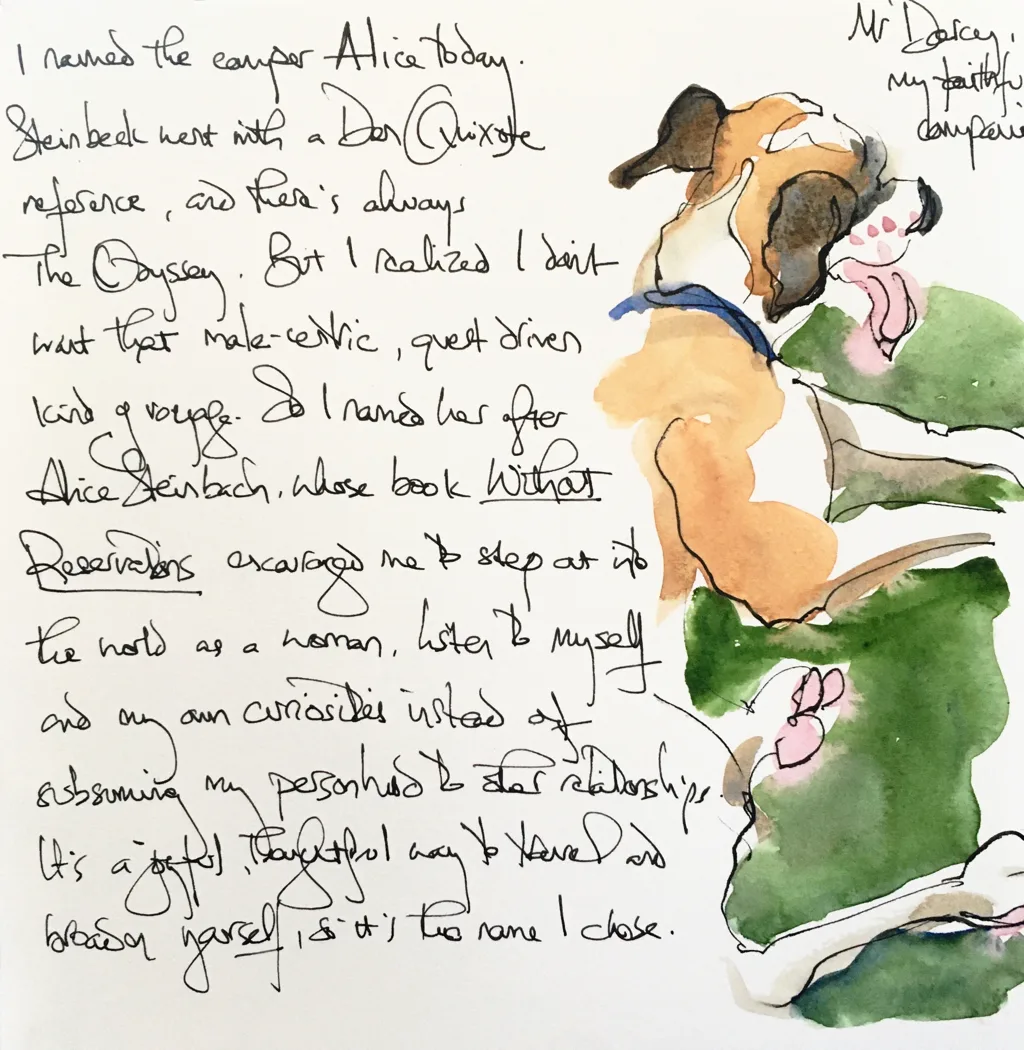 I named the camper Alice today.
Steinbeck went with a Don Quixote
reference, and there's always
The Odyssey. But I realized I don't
want that male-centric, quest driven
kind of voyage. So I named her after
Alice Steinbach, whose book Without
Reservations encouraged me to step out into
the world as a woman, listen to myself
and my own curiosities instead of
subsuming my personhood to other relationships.
It's a joyful, thoughtful way to travel and
broaden yourself, so it's the name I chose.
Mr Darcey,
my faithfu
compani